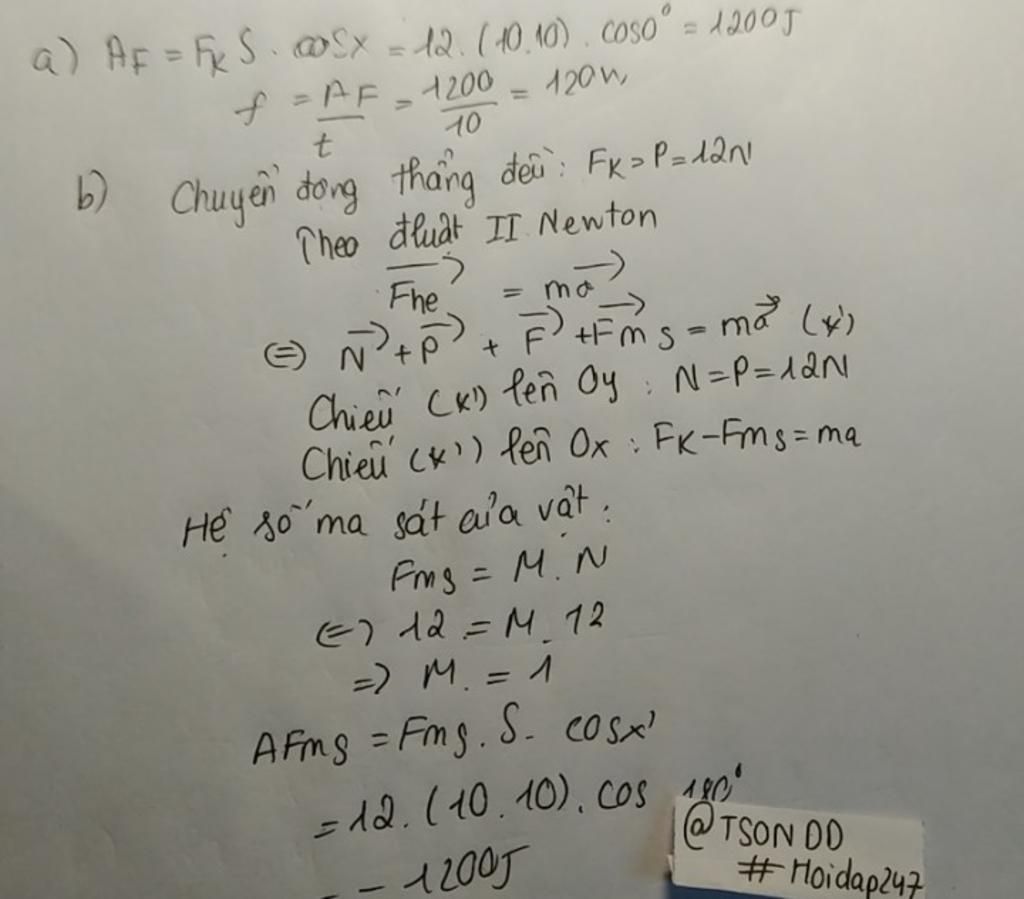 a) AF = FK S . cosx = 12. (10.10) . cos0° = 1200J
f = AF/t = 1200/10 = 120W
b) Chuyển động thẳng đều: FK = P = 12N
Theo đluật II Newton
Fhe = ma
⇔ N + P + F + Fms = ma (*)
Chiếu (*) lên Oy : N = P = 12N
Chiếu (*) lên Ox : FK - Fms = ma
Hệ số ma sát của vật :
Fms = M. N
⇔ 12 = M. 12
⇒ M. = 1
AFms = Fms. S. cosx'
= 12. (10.10). cos 180°
= - 1200J
@TSONDD
#Hoidap247